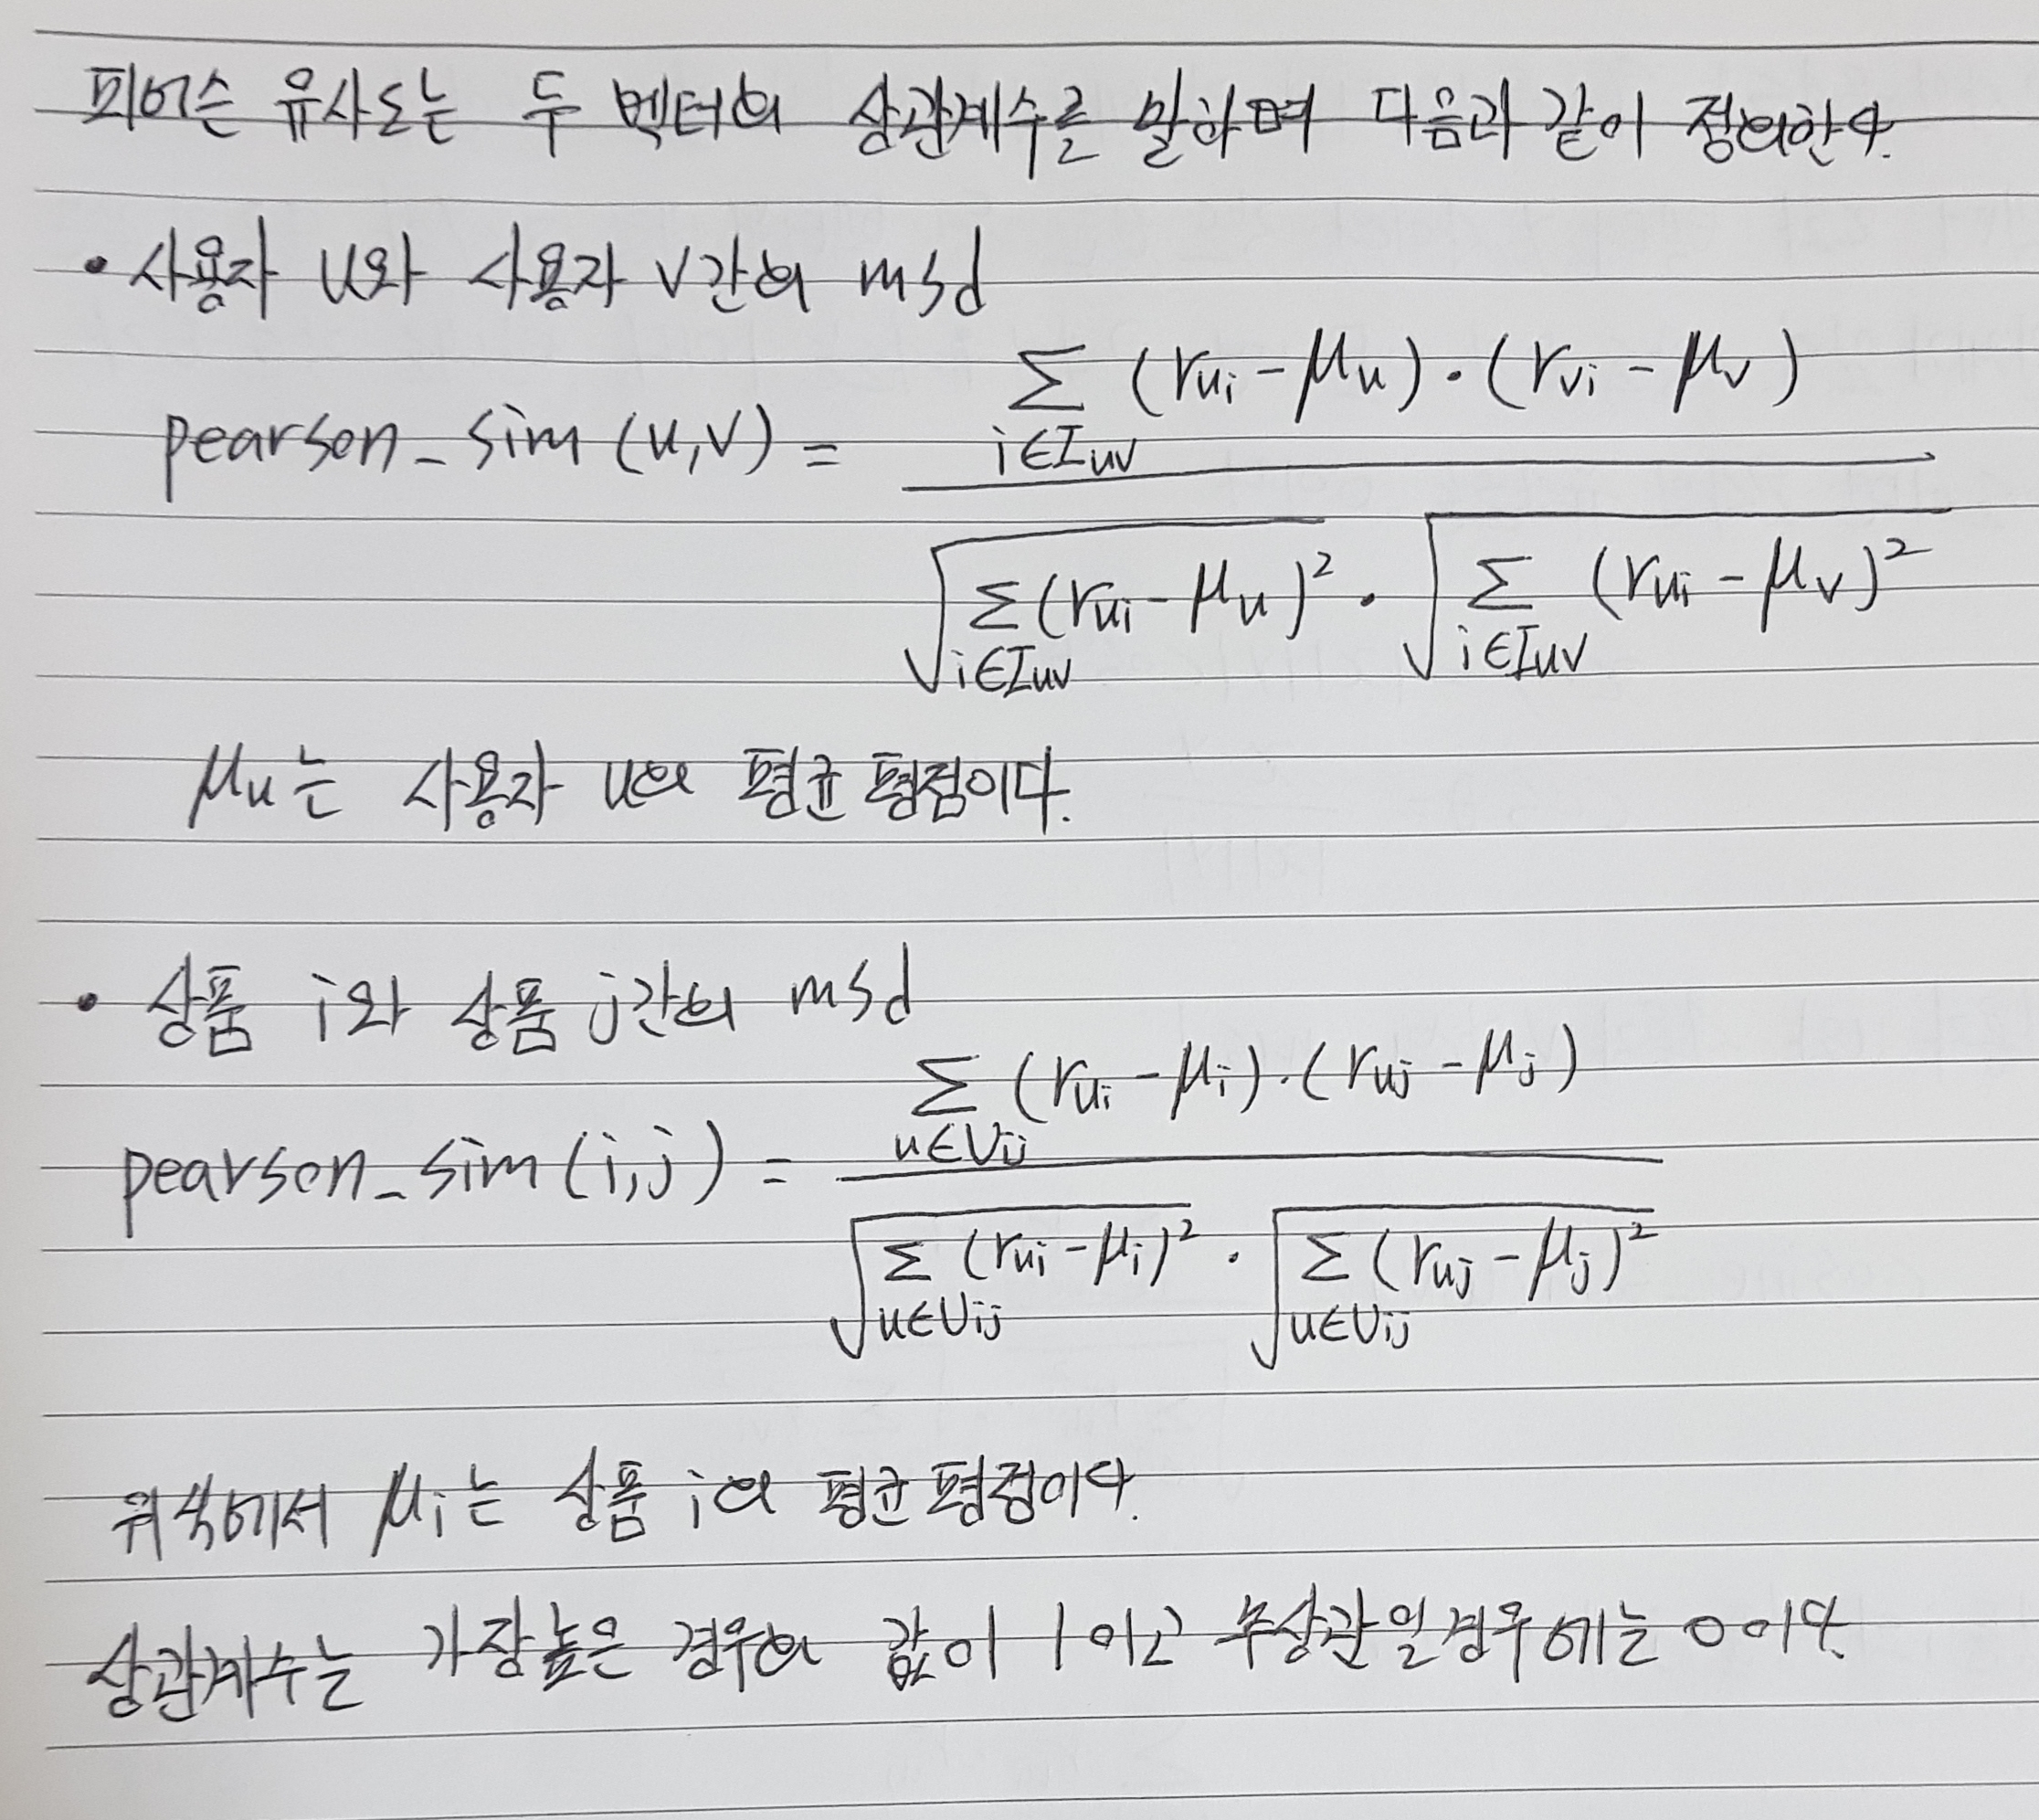 피어슨 유사도는 두 벡터의 상관계수를 말하며 다음과 같이 정의한다.
• 사용자 u와 사용자 v간의 msd
pearson_sim(u,v) = \frac{\sum_{i∈I_{uv}} (r_{ui} - μ_u)·(r_{vi} - μ_v)}{\sqrt{\sum_{i∈I_{uv}} (r_{ui} - μ_u)^2} · \sqrt{\sum_{i∈I_{uv}} (r_{ui} - μ_v)^2}}
μ_u는 사용자 u의 평균 평점이다.
• 상품 i와 상품 j간의 msd
pearson_sim(i,j) = \frac{\sum_{u∈U_{ij}} (r_{ui} - μ_i)·(r_{uj} - μ_j)}{\sqrt{\sum_{u∈U_{ij}} (r_{ui} - μ_i)^2} · \sqrt{\sum_{u∈U_{ij}} (r_{uj} - μ_j)^2}}
위식에서 μ_i는 상품 i의 평균 평점이다.
상관계수는 가장 높은 경우의 값이 1이고 무상관일경우에는 0이다.